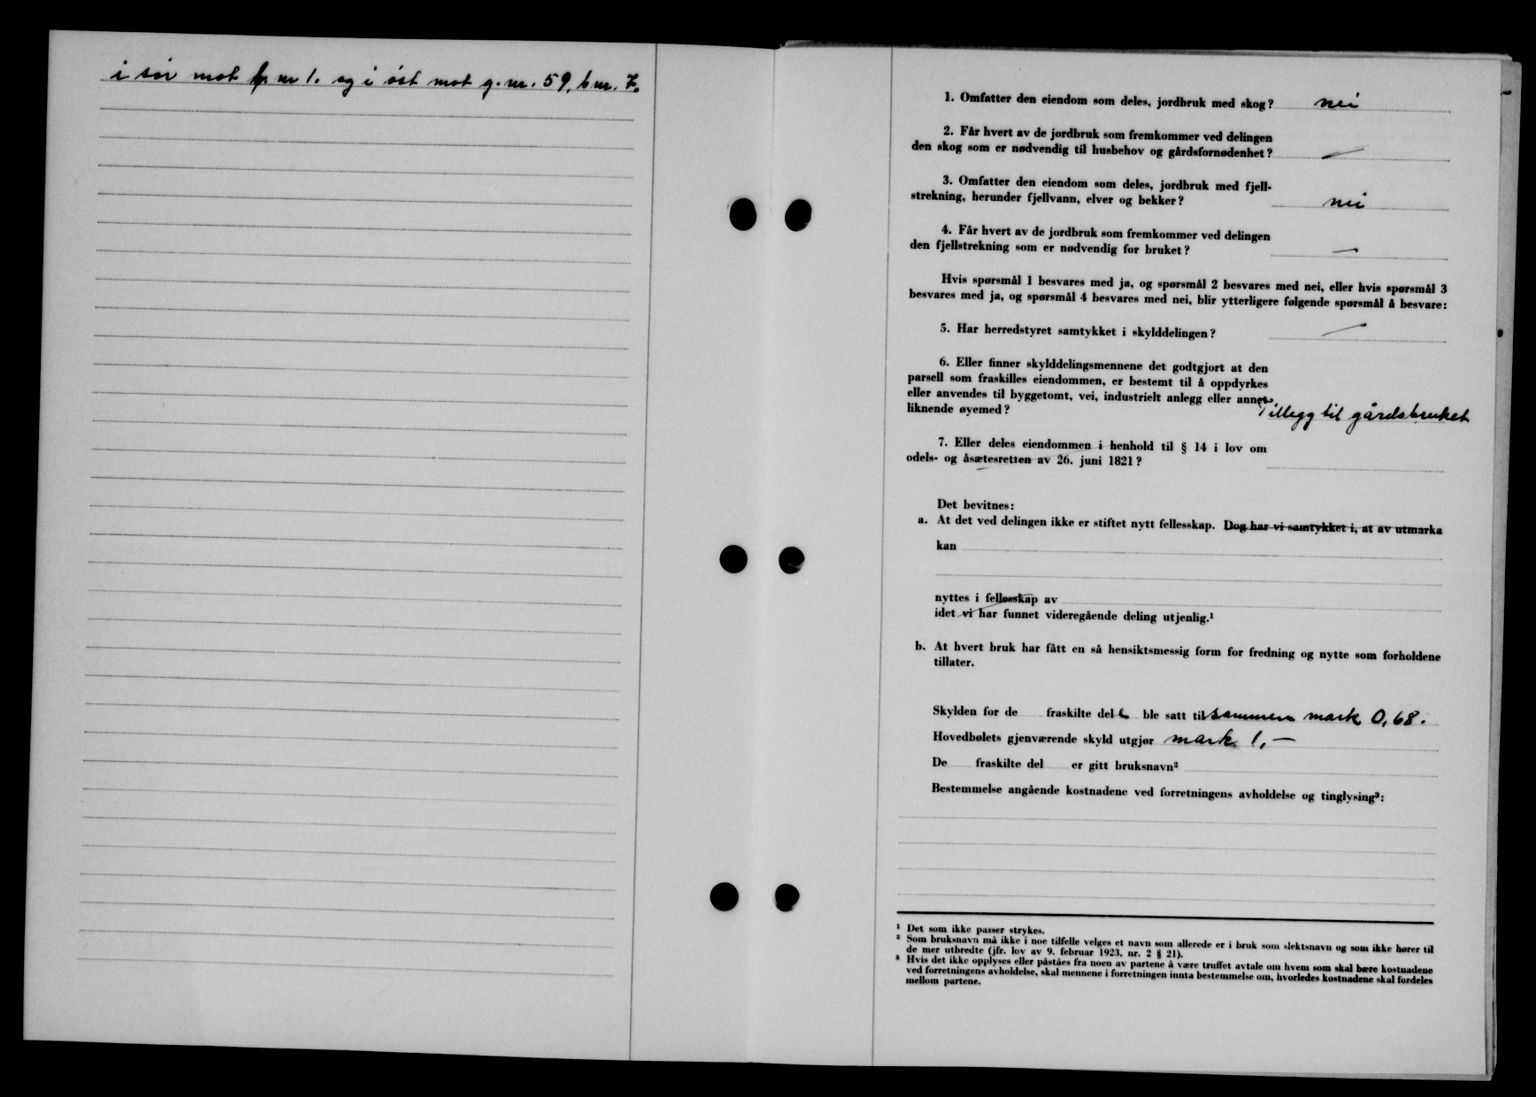 i sør mot b nr 1. og i øst mot g. nr. 59, b nr. 7.
1. Omfatter den eiendom som deles, jordbruk med skog? nei
2. Får hvert av de jordbruk som fremkommer ved delingen
den skog som er nødvendig til husbehov og gårdsfornødenhet? —
3. Omfatter den eiendom som deles, jordbruk med fjell-
strekning, herunder fjellvann, elver og bekker? nei
4. Får hvert av de jordbruk som fremkommer ved delingen
den fjellstrekning som er nødvendig for bruket? —
Hvis spørsmål 1 besvares med ja, og spørsmål 2 besvares med nei, eller hvis spørsmål 3
besvares med ja, og spørsmål 4 besvares med nei, blir ytterligere følgende spørsmål å besvare:
5. Har herredstyret samtykket i skylddelingen? —
6. Eller finner skylddelingsmennene det godtgjort at den
parsell som fraskilles eiendommen, er bestemt til å oppdyrkes
eller anvendes til byggetomt, vei, industrielt anlegg eller annet
liknende øyemed? Tillegg til gårdsbruket
7. Eller deles eiendommen i henhold til § 14 i lov om
odels- og åsætesretten av 26. juni 1821?
Det bevitnes:
a. At det ved delingen ikke er stiftet nytt fellesskap. Dog har vi samtykket i, at av utmarka
kan
nyttes i fellesskap av
idet vi har funnet videregående deling utjenlig.¹
b. At hvert bruk har fått en så hensiktsmessig form for fredning og nytte som forholdene
tillater.
Skylden for de fraskilte dele ble satt til sammen mark 0,68.
Hovedbølets gjenværende skyld utgjør mark 1, —
De fraskilte del er gitt bruksnavn²
Bestemmelse angående kostnadene ved forretningens avholdelse og tinglysing³:
¹ Det som ikke passer strykes.
² Som bruksnavn må ikke i noe tilfelle velges et navn som allerede er i bruk som slektsnavn og som ikke hører til
de mer utbredte (jfr. lov av 9. februar 1923, nr. 2 § 21).
³ Hvis det ikke opplyses eller påståes fra noen av partene å være truffet avtale om hvem som skal bære kostnadene
ved forretningens avholdelse, skal mennene i forretningen innta bestemmelse om, hvorledes kostnadene skal fordeles
mellom partene.